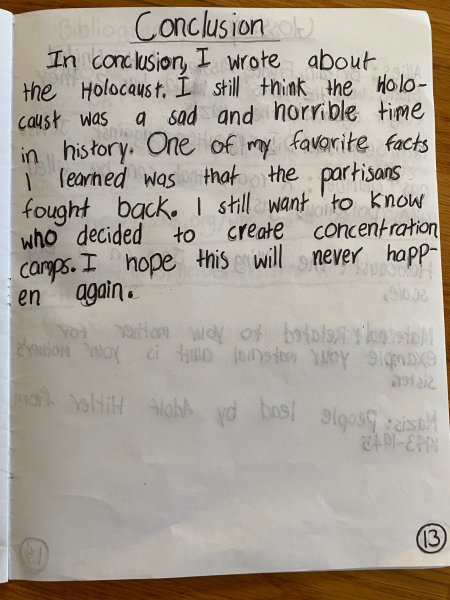 Conclusion
In conclusion, I wrote about
the Holocaust. I still think the Holo-
caust was a sad and horrible time
in history. One of my favorite facts
I learned was that the partisans
fought back. I still want to know
who decided to create concentration
camps. I hope this will never happ-
en again.
13